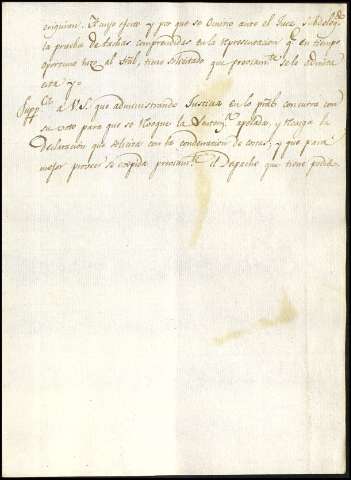 enquiron. A cuyo efecto y pro que se Omitio ante el Juez
la prueba de tachas comprendidas en la representacion q.e en tiempo
oportuno hizo al Stral, tiene solicitado que previam.te se le admita
esta y
Supp.co a V.S. que administrando Justicia en lo prâl. concurra con
su voto para que se Revoque la Sentenz.a apelada, y Recaiga la
Declaracion que solicita con la condenacion de costas, y que para
mejor proveer se expida previam.te el Despacho que tiene pedido